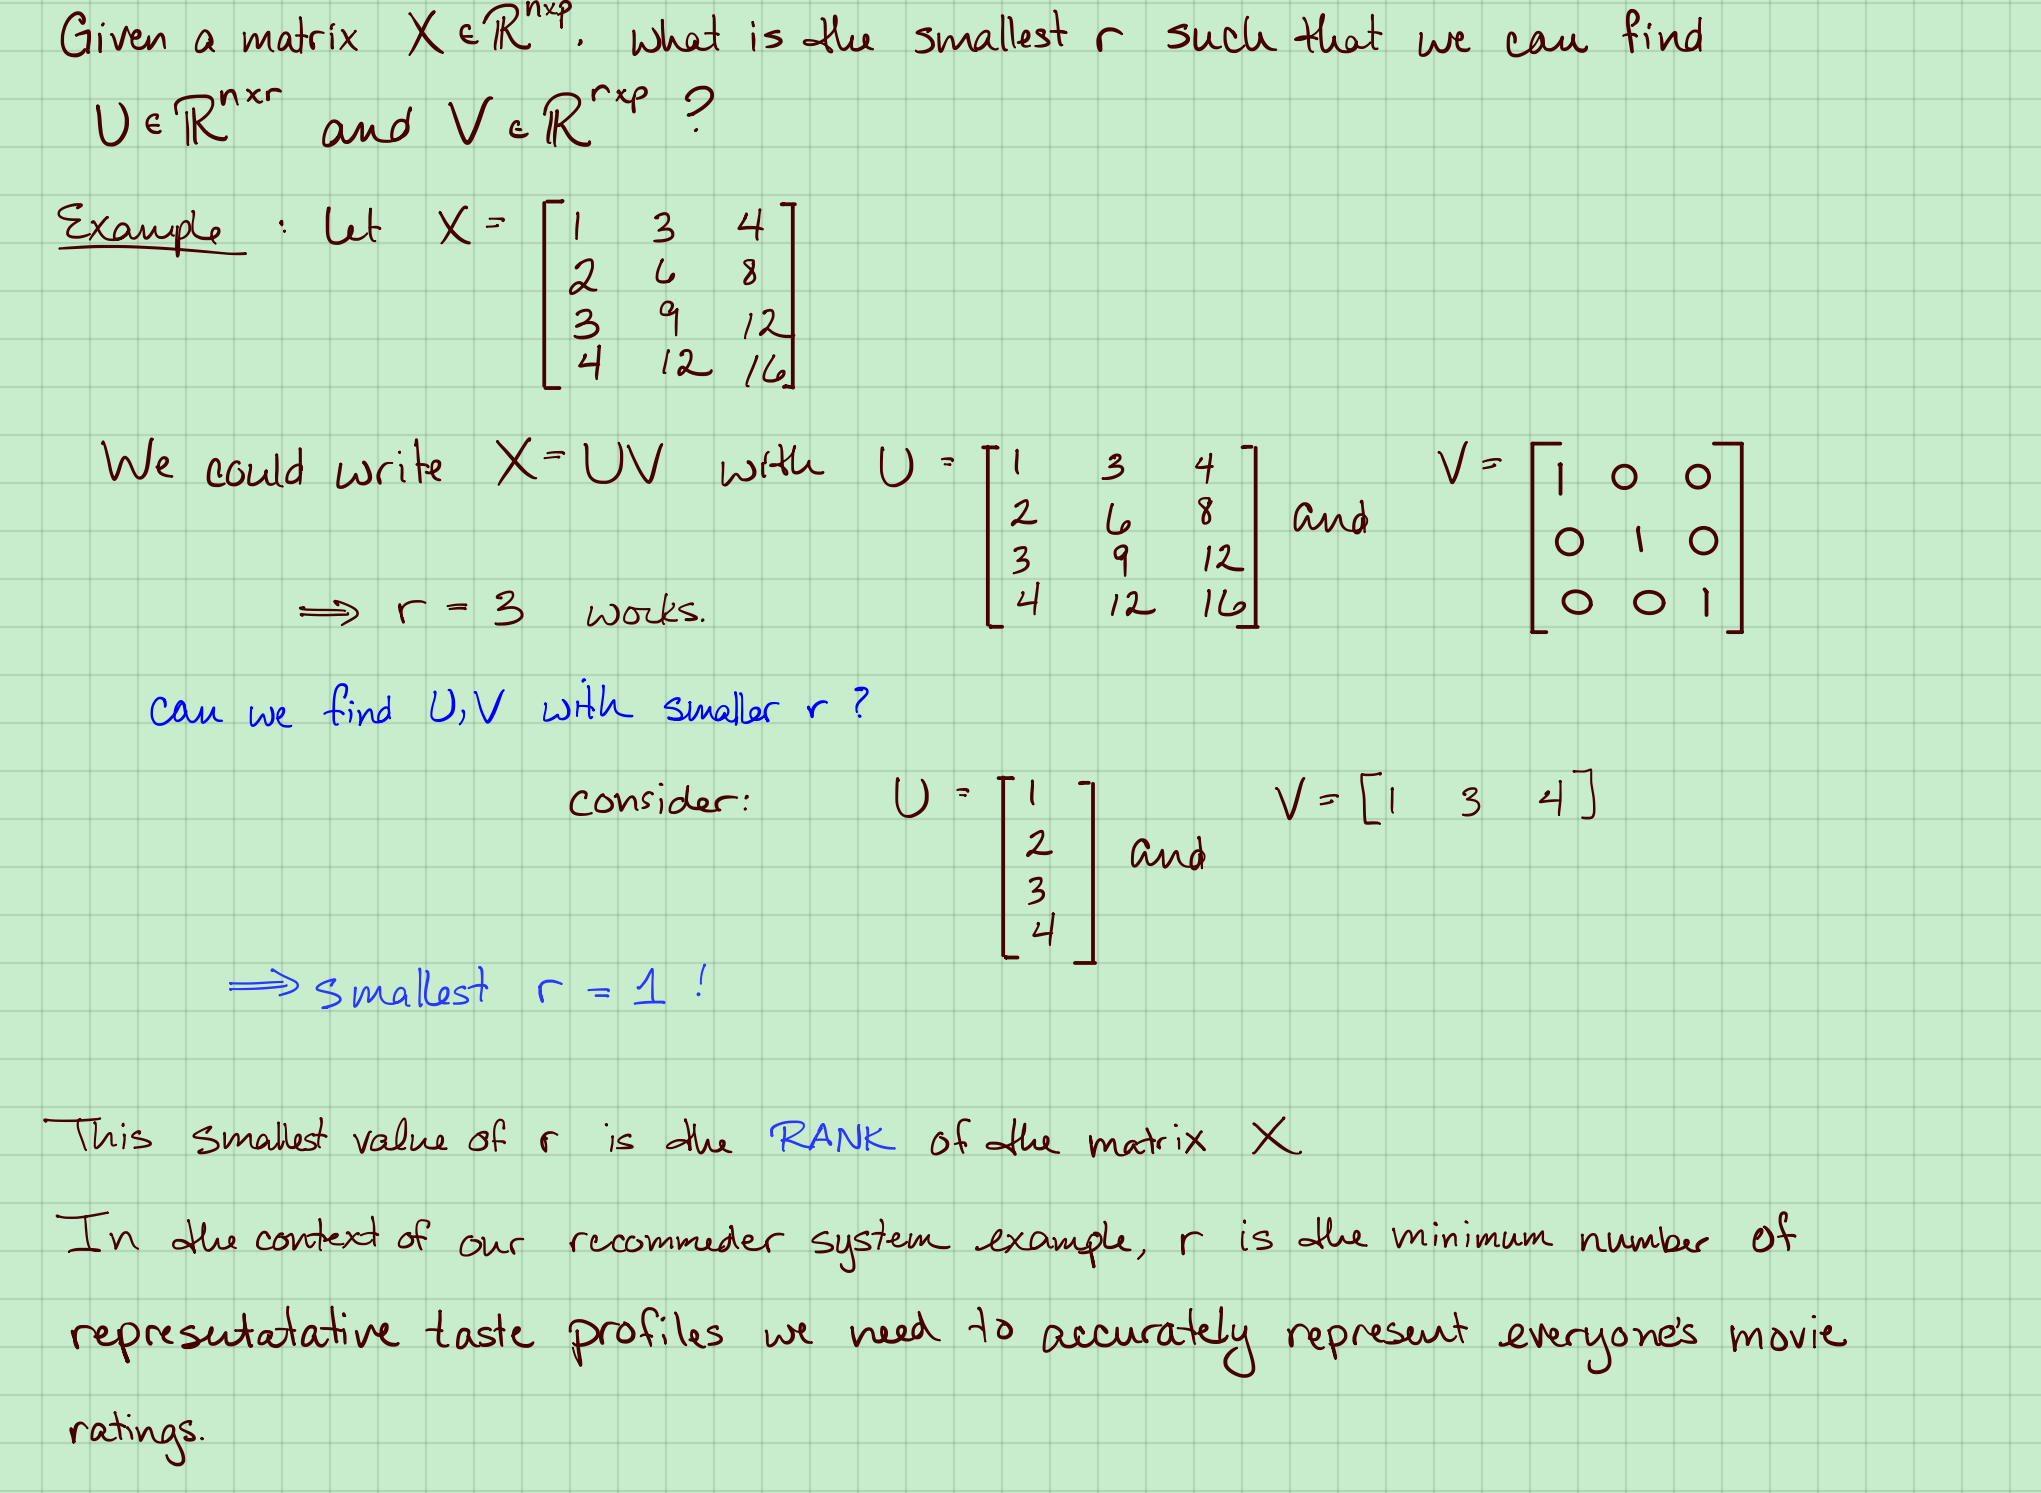 Given a matrix X ∈ ℝ^{n×p}. What is the smallest r such that we can find
U ∈ ℝ^{n×r} and V ∈ ℝ^{r×p} ?
Example : Let X = [1 3 4
2 6 8
3 9 12
4 12 16]
We could write X = UV with U = [1 3 4
2 6 8
3 9 12
4 12 16] and V = [1 0 0
0 1 0
0 0 1]
⟹ r = 3 works.
can we find U,V with smaller r ?
consider: U = [1
2
3
4] and V = [1 3 4]
⟹ smallest r = 1 !
This smallest value of r is the RANK of the matrix X
In the context of our recommeder system example, r is the minimum number of
represutatative taste profiles we need to accurately represent everyone's movie
ratings.